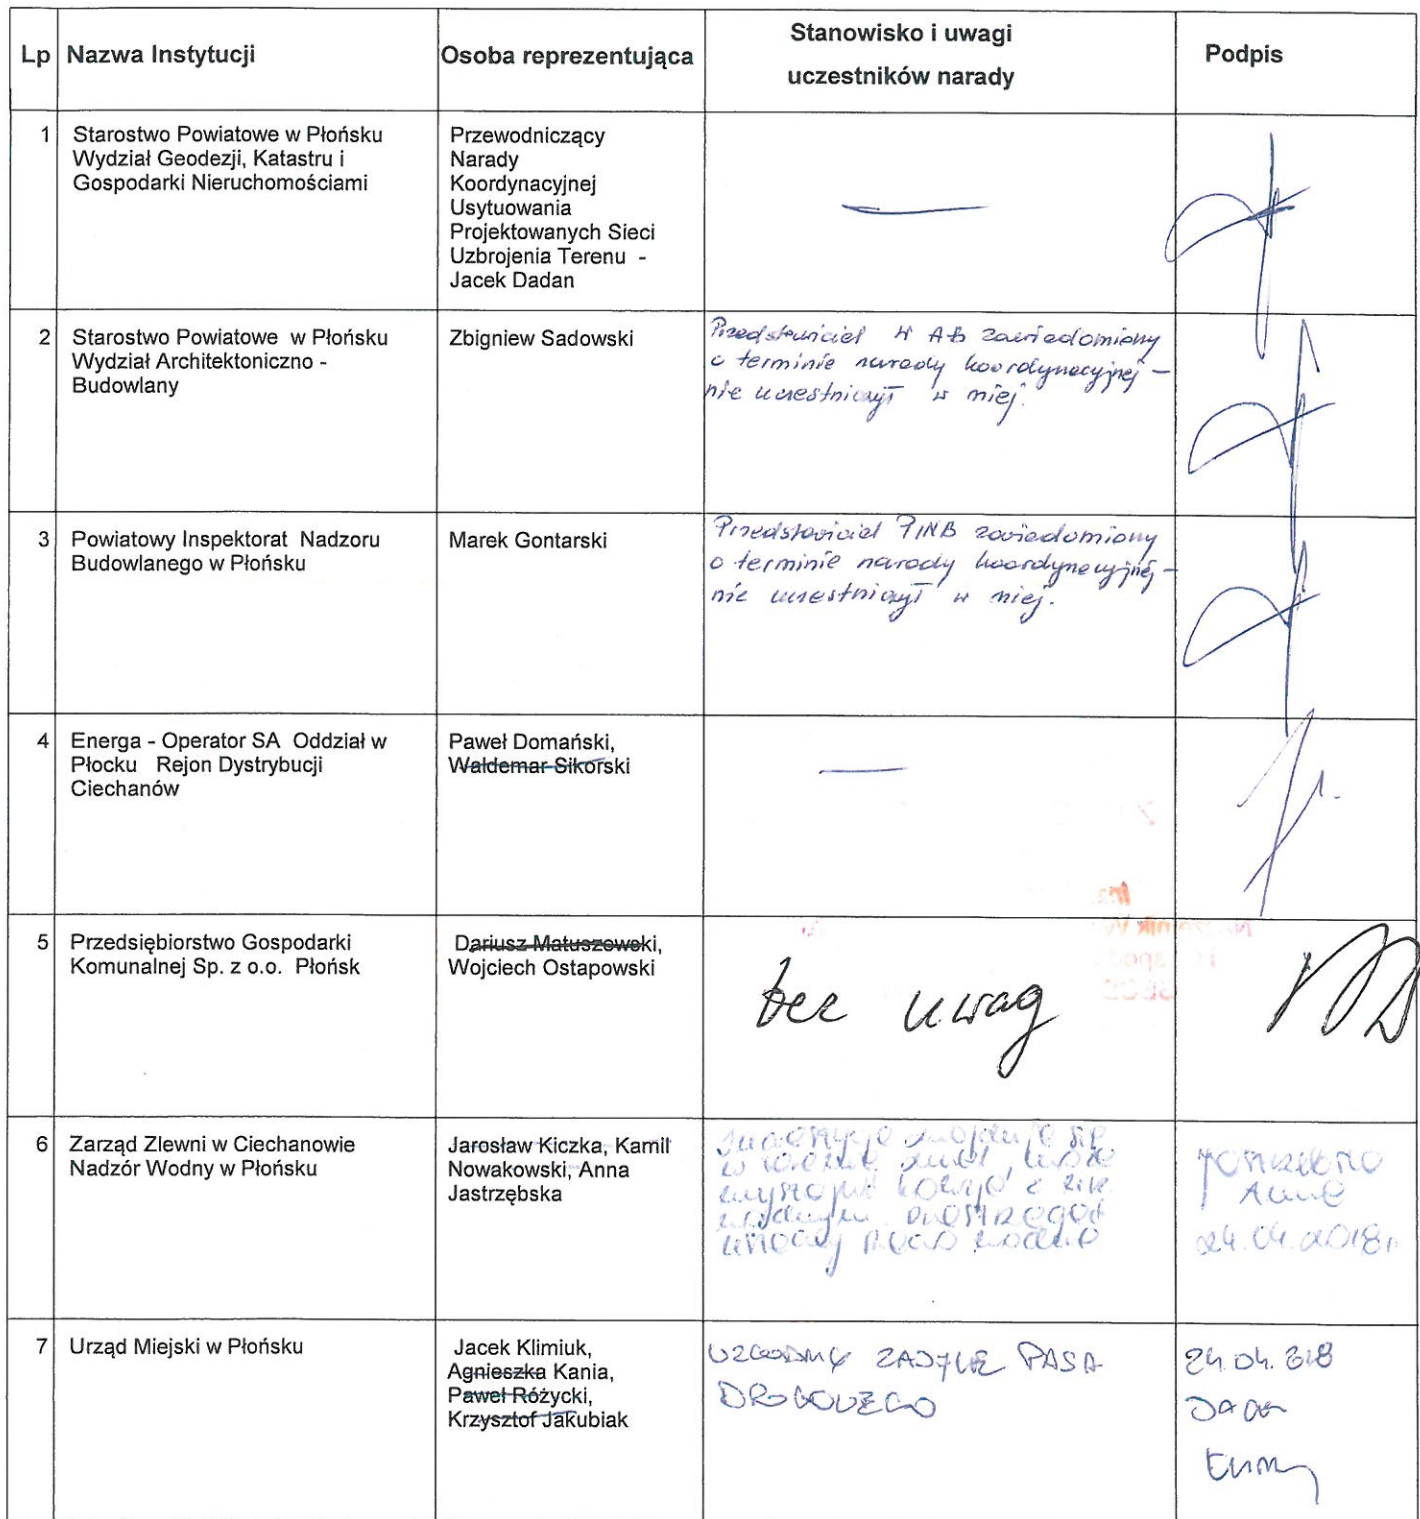 Lp Nazwa Instytucji Osoba reprezentująca Stanowisko i uwagi uczestników narady Podpis
1 Starostwo Powiatowe w Płońsku
Wydział Geodezji, Katastru i
Gospodarki Nieruchomościami
Przewodniczący
Narady
Koordynacyjnej
Usytuowania
Projektowanych Sieci
Uzbrojenia Terenu -
Jacek Dadan
2 Starostwo Powiatowe w Płońsku
Wydział Architektoniczno -
Budowlany
Zbigniew Sadowski
Przedstawiciel W AB zawiadomiony
o terminie narady koordynacyjnej -
nie uczestniczył w niej.
3 Powiatowy Inspektorat Nadzoru
Budowlanego w Płońsku
Marek Gontarski
Przedstawiciel PINB zawiadomiony
o terminie narady koordynacyjnej -
nie uczestniczył w niej.
4 Energa - Operator SA Oddział w
Płocku Rejon Dystrybucji
Ciechanów
Paweł Domański,
Waldemar Sikorski
5 Przedsiębiorstwo Gospodarki
Komunalnej Sp. z o.o. Płońsk
Dariusz Matuszewski,
Wojciech Ostapowski
bez uwag
6 Zarząd Zlewni w Ciechanowie
Nadzór Wodny w Płońsku
Jarosław Kiczka, Kamil
Nowakowski, Anna
Jastrzębska
znajduje się
w
z
wodnym przestrzegać
ustawy prawo wodne
Anna
24.04.2018r
7 Urząd Miejski w Płońsku
Jacek Klimiuk,
Agnieszka Kania,
Paweł Różycki,
Krzysztof Jakubiak
UZGODNIĆ ZAJĘCIE PASA
DROGOWEGO
24.04.2018